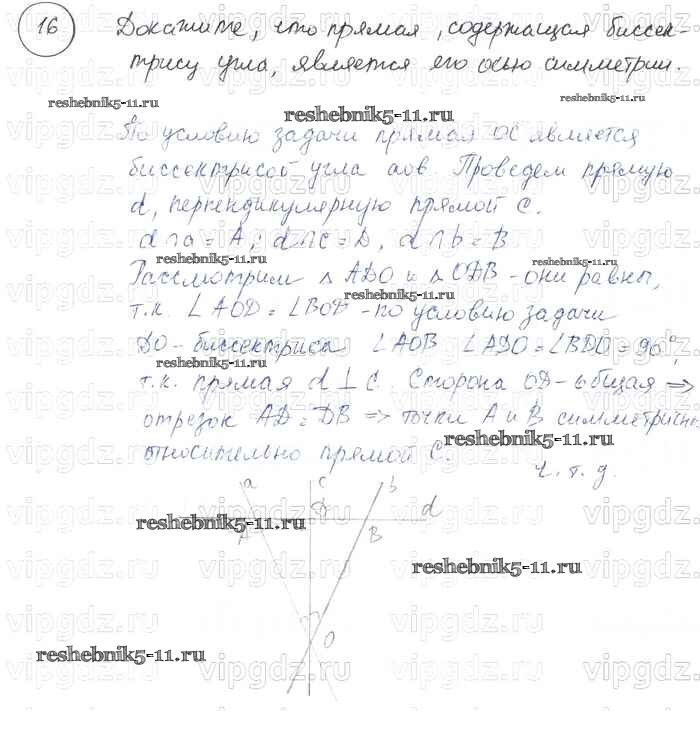 16 Докажите, что прямая, содержащая биссек-
трису угла, является его осью симметрии.
reshebnik5-11.ru
reshebnik5-11.ru
По условию задачи прямая ОС является
биссектрисой угла аов. Проведем прямую
d, перпендикулярную прямой С.
d∩a = A; d∩c = D, d∩b = B
reshebnik5-11.ru
reshebnik5-11.ru
Рассмотрим △ ADO и △ ODB - они равны,
reshebnik5-11.ru
т.к. ∠AOD = ∠BOD - по условию задачи
DO - биссектриса ∠AOB ∠ADO = ∠BDO = 90°,
reshebnik5-11.ru
т.к. прямая d ⊥ C. Сторона OD - общая ⇒
отрезок AD = DB ⇒ точки A и B симметричны
reshebnik5-11.ru
относительно прямой C.
ч. т. д.
a c b
D d
reshebnik5-11.ru
A B
reshebnik5-11.ru
O
reshebnik5-11.ru
vipgdz.ru